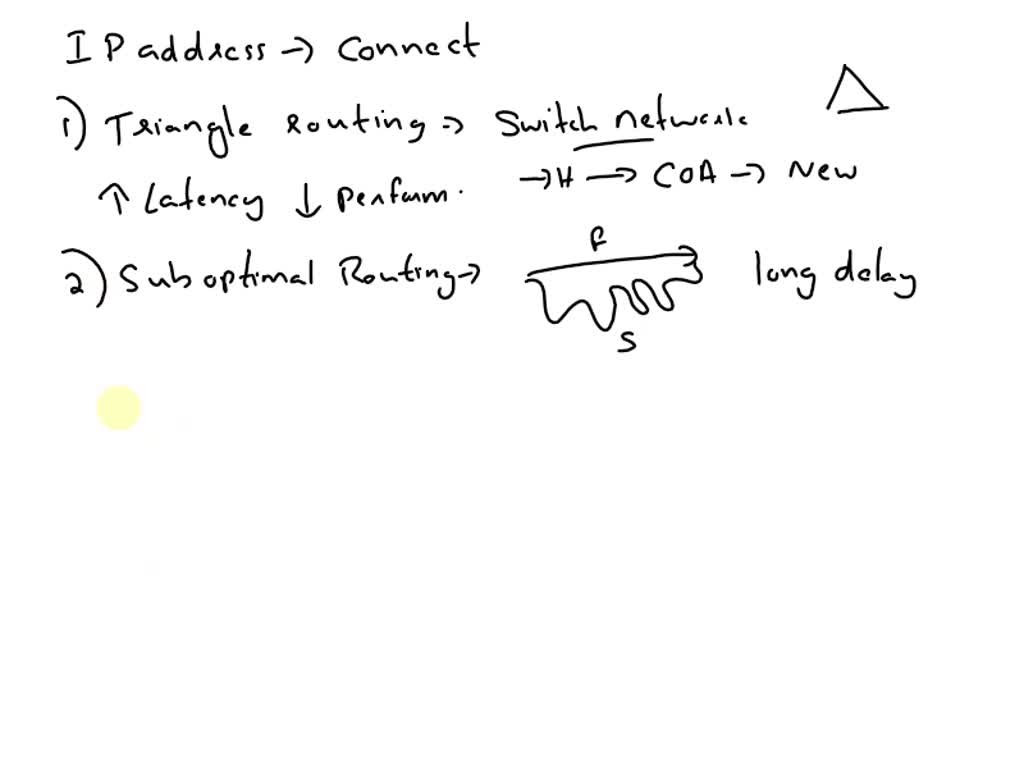 IP address → Connect
1) Triangle Routing ⇒ Switch network
→ H → COA → New
↑ Latency ↓ Perform.
2) Suboptimal Routing → long delay
F
S